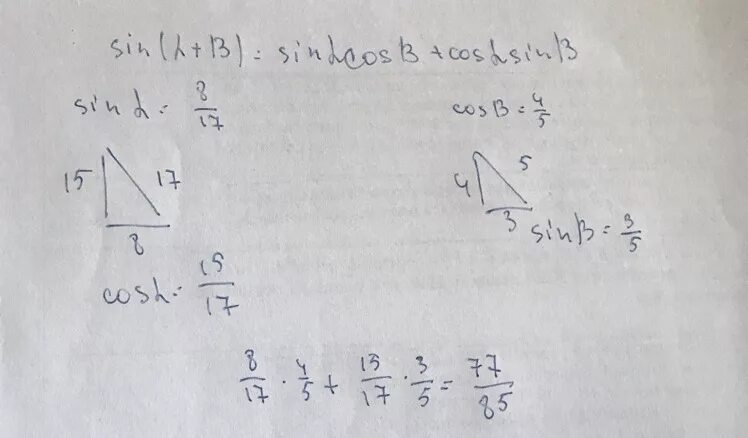 sin(α+β) = sinαcosβ+cosαsinβ
sinα = 8/17
cosβ = 4/5
15 17
8
4 5
3
sinβ = 3/5
cosα = 15/17
8/17 · 4/5 + 15/17 · 3/5 = 77/85